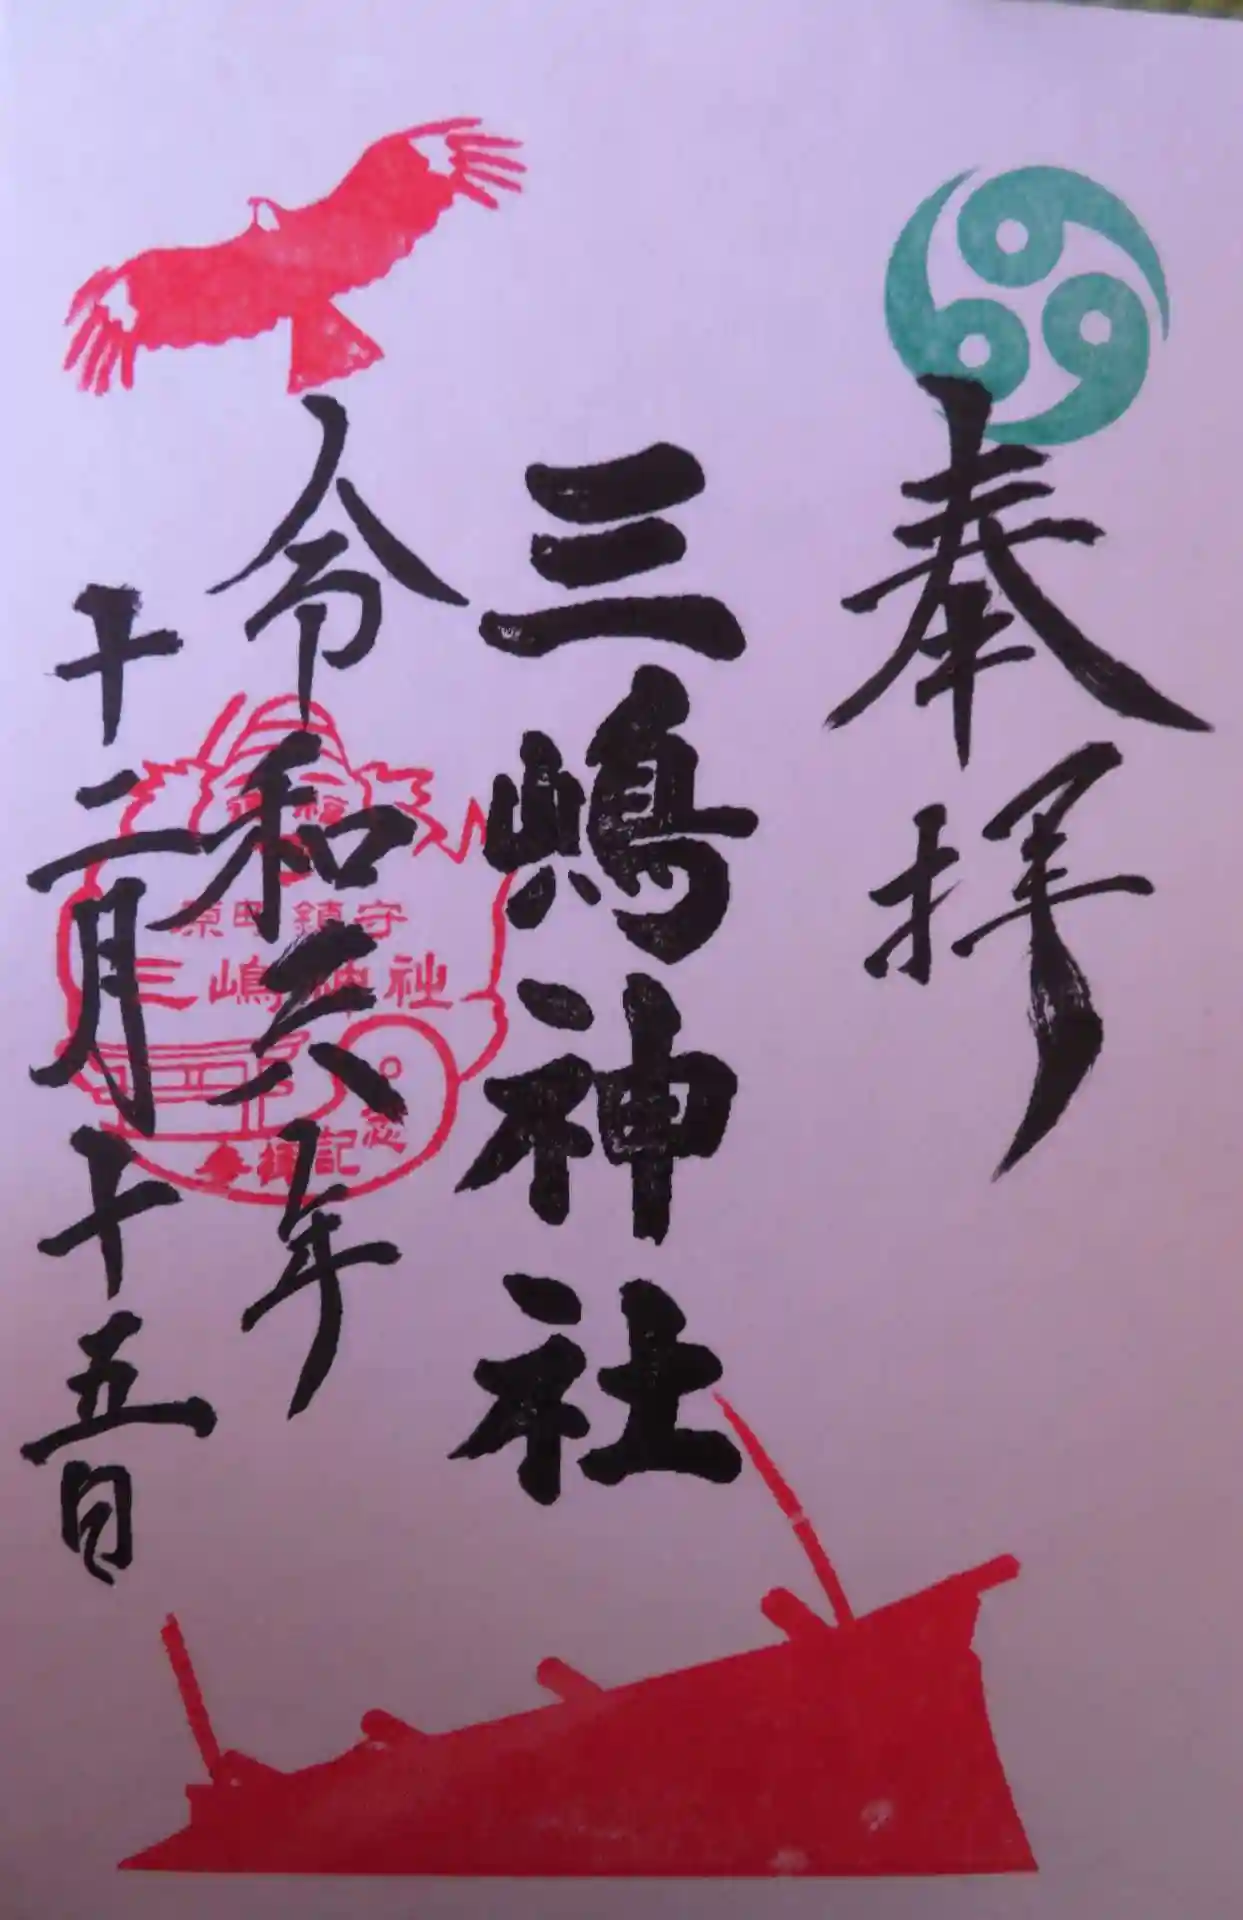 奉拝
三嶋神社
令和六年
十二月十五日
原町鎮守
三嶋神社
参拝記念